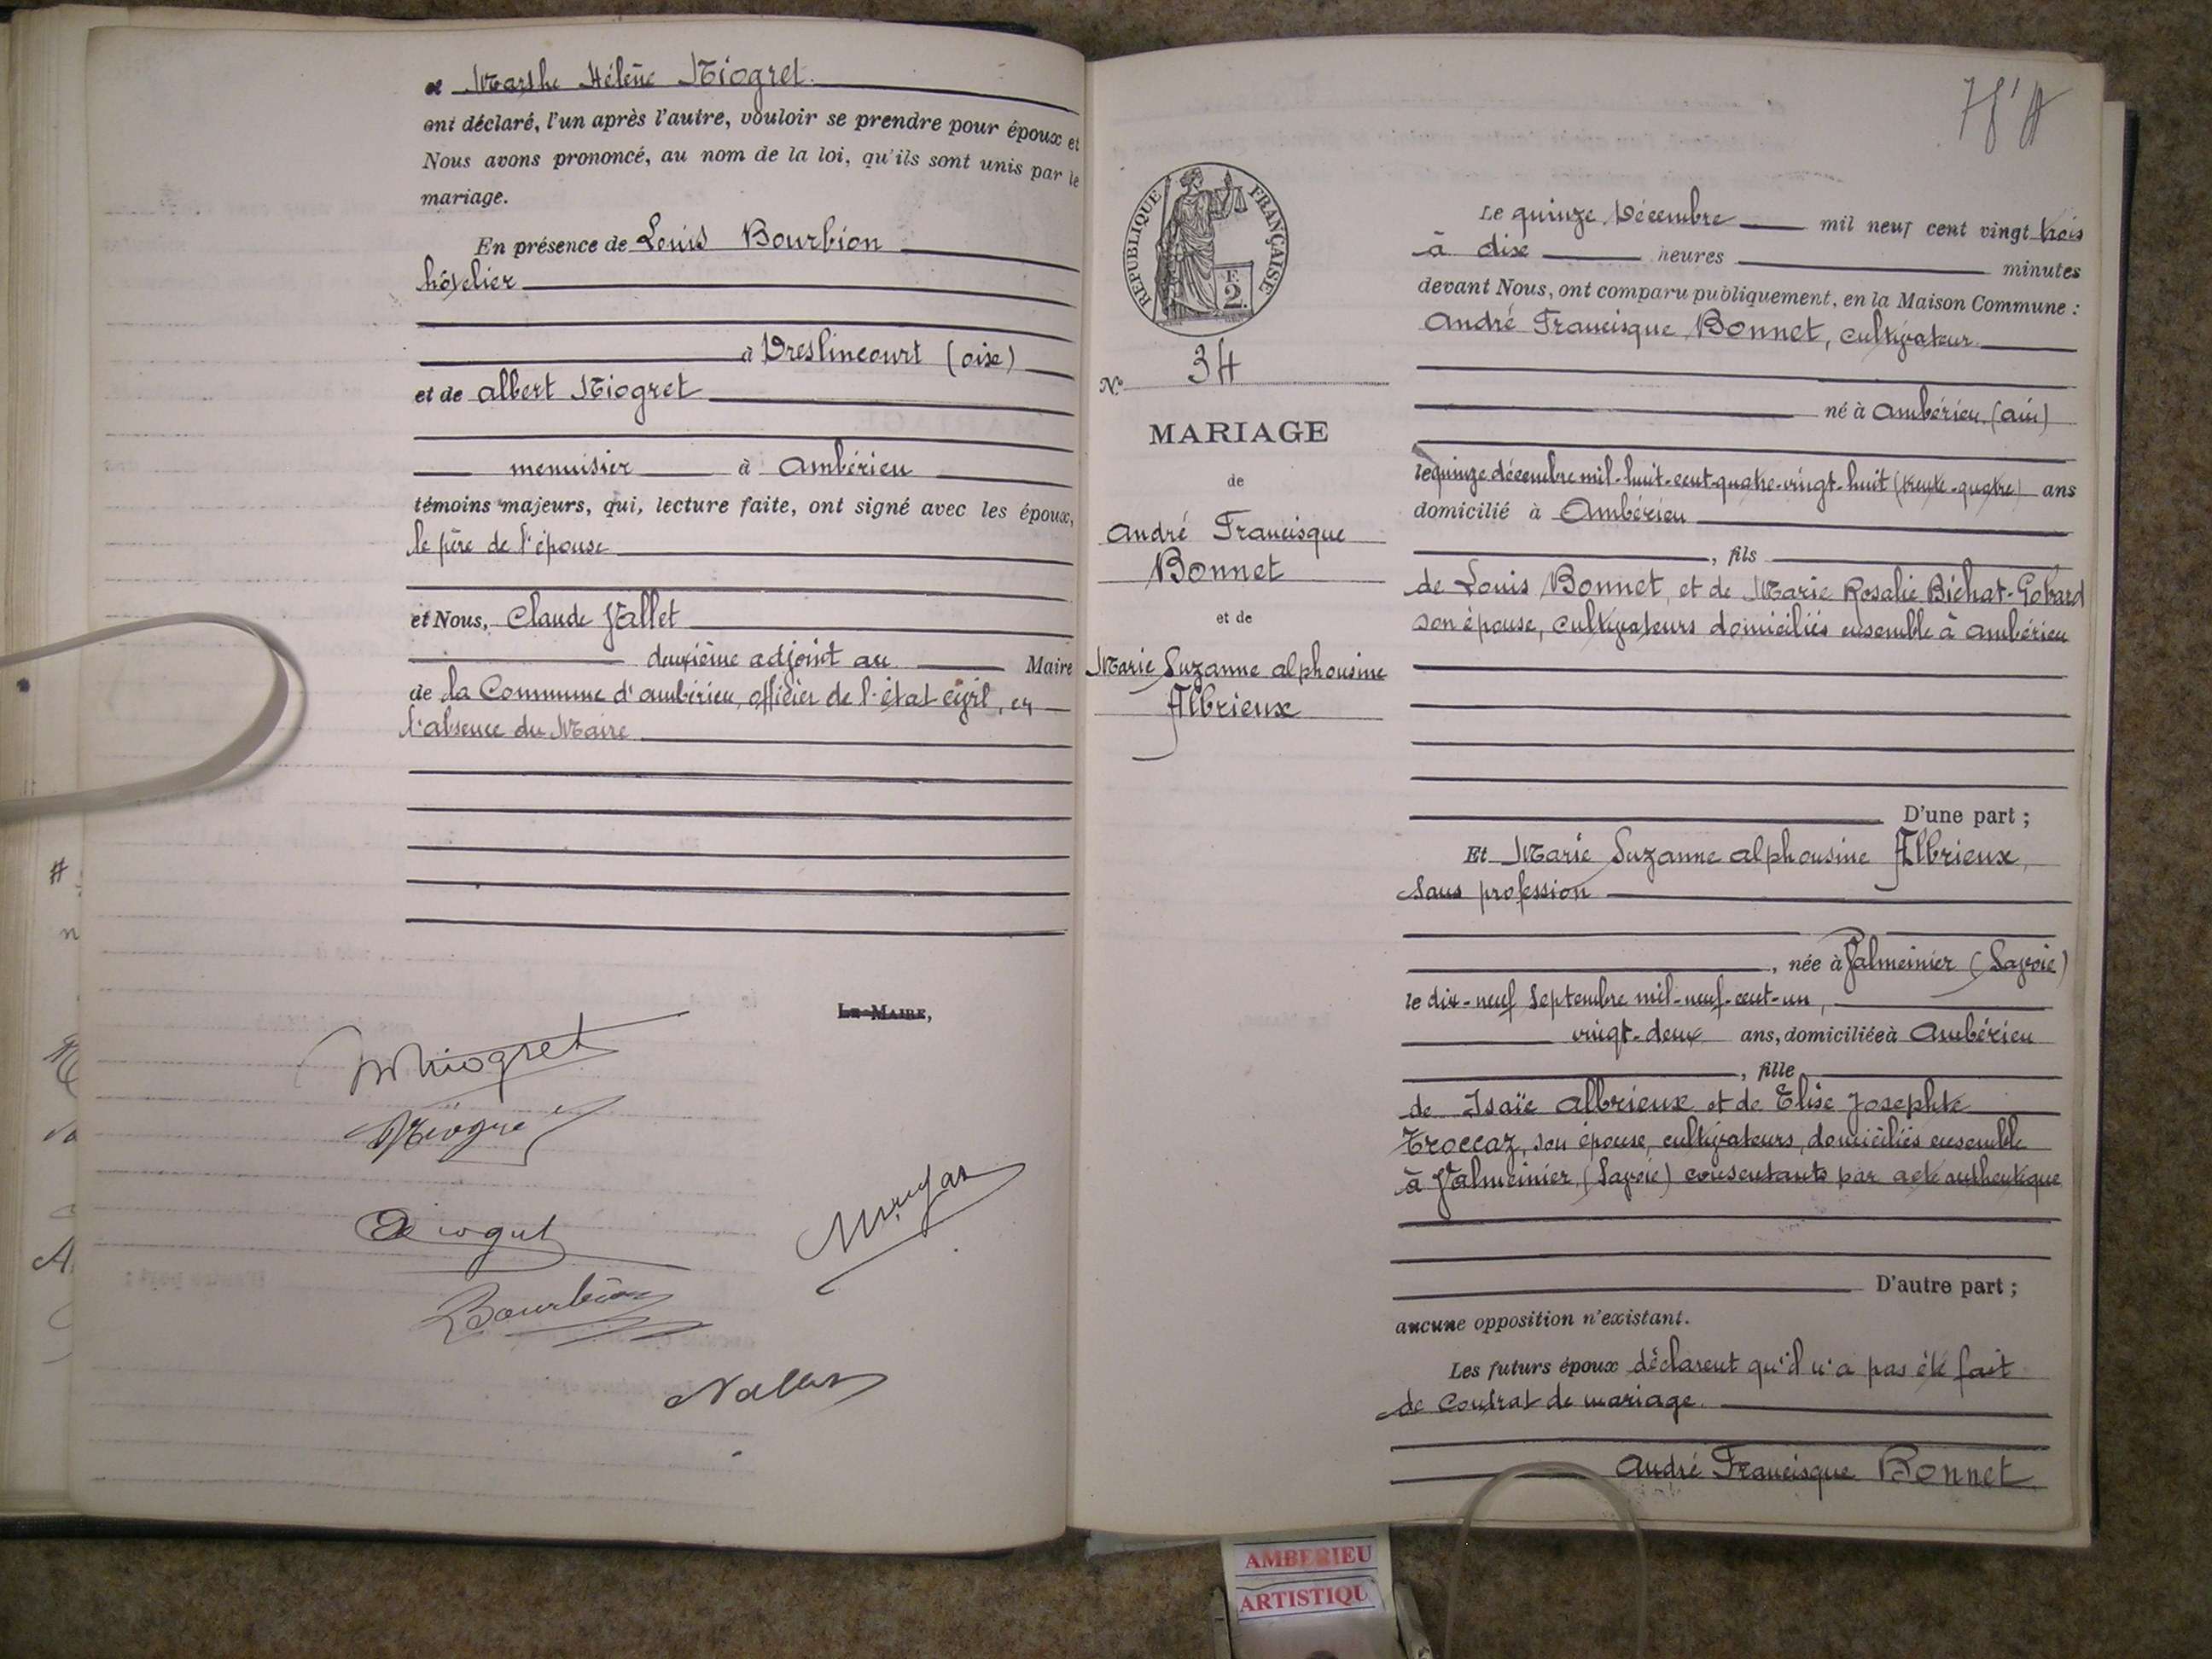 et Marthe Hélène Niogret
ont déclaré, l'un après l'autre, vouloir se prendre pour époux et
Nous avons prononcé, au nom de la loi, qu'ils sont unis par le
mariage.
En présence de Louis Bourbion
hôtelier
à Dreslincourt (oise)
et de Albert Niogret
menuisier à Ambérieu
témoins majeurs, qui, lecture faite, ont signé avec les époux,
le père de l'épouse
et Nous, Claude Vallet
deuxième adjoint au Maire
de la Commune d'ambérieu, officier de l'état civil, en
l'absence du Maire
Le Maire,
Niogret
Bourbion
REPUBLIQUE FRANÇAISE
E
2
No 34
MARIAGE
de
André Francisque
Bonnet
et de
Marie Suzanne alphonsine
Albrieux
Le quinze Décembre mil neuf cent vingt trois
à dix heures minutes
devant Nous, ont comparu publiquement, en la Maison Commune :
André Francisque Bonnet, cultivateur
né à Ambérieu (ain)
le quinze décembre mil-huit-cent-quatre-vingt-huit (trente-quatre) ans
domicilié à Ambérieu
, fils
de Louis Bonnet, et de Marie Rosalie Bichat-Gobard
son épouse, cultivateurs domiciliés ensemble à ambérieu
D'une part ;
Et Marie Suzanne alphonsine Albrieux,
sans profession
, née à Valmeinier (Savoie)
le dix-neuf Septembre mil-neuf-cent-un,
vingt-deux ans, domiciliée à Ambérieu
, fille
de Isaïe Albrieux et de Elise Josephte
Troccaz, son épouse, cultivateurs, domiciliés ensemble
à Valmeinier, (Savoie) consentants par acte authentique
D'autre part ;
aucune opposition n'existant.
Les futurs époux déclarent qu'il n'a pas été fait
de Contrat de mariage.
André Francisque Bonnet
AMBERIEU
ARTISTIQU